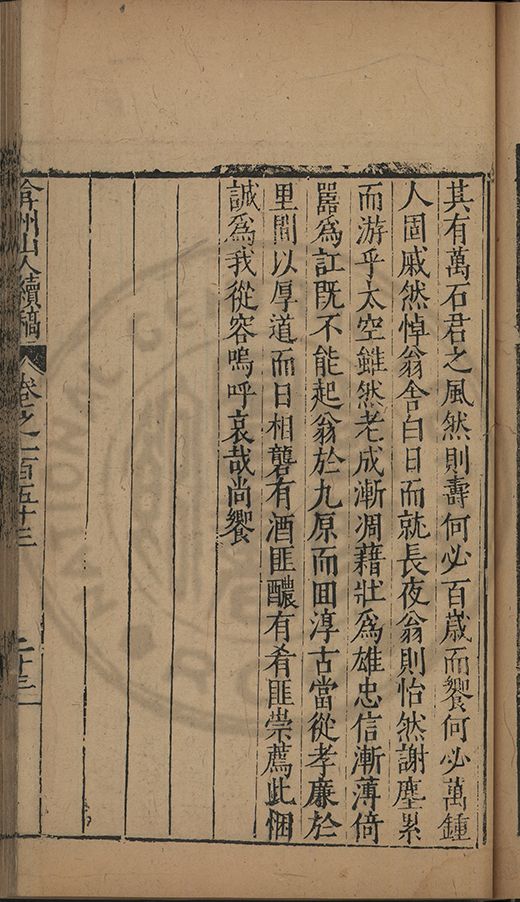 其有萬石君之風然則壽何必百歲而饗何必萬鍾
人固戚然悼翁舍白日而就長夜翁則怡然謝塵累
而游乎太空雖然老成漸凋藉壯爲雄忠信漸薄倚
嚚爲訌既不能起翁於九原而囬淳古當從孝廉於
里閭以厚道而日相礱有酒匪醲有肴匪崇薦此悃
誠爲我從容嗚呼哀哉尚饗
弇州山人續稿 卷之一百五十三 二十三